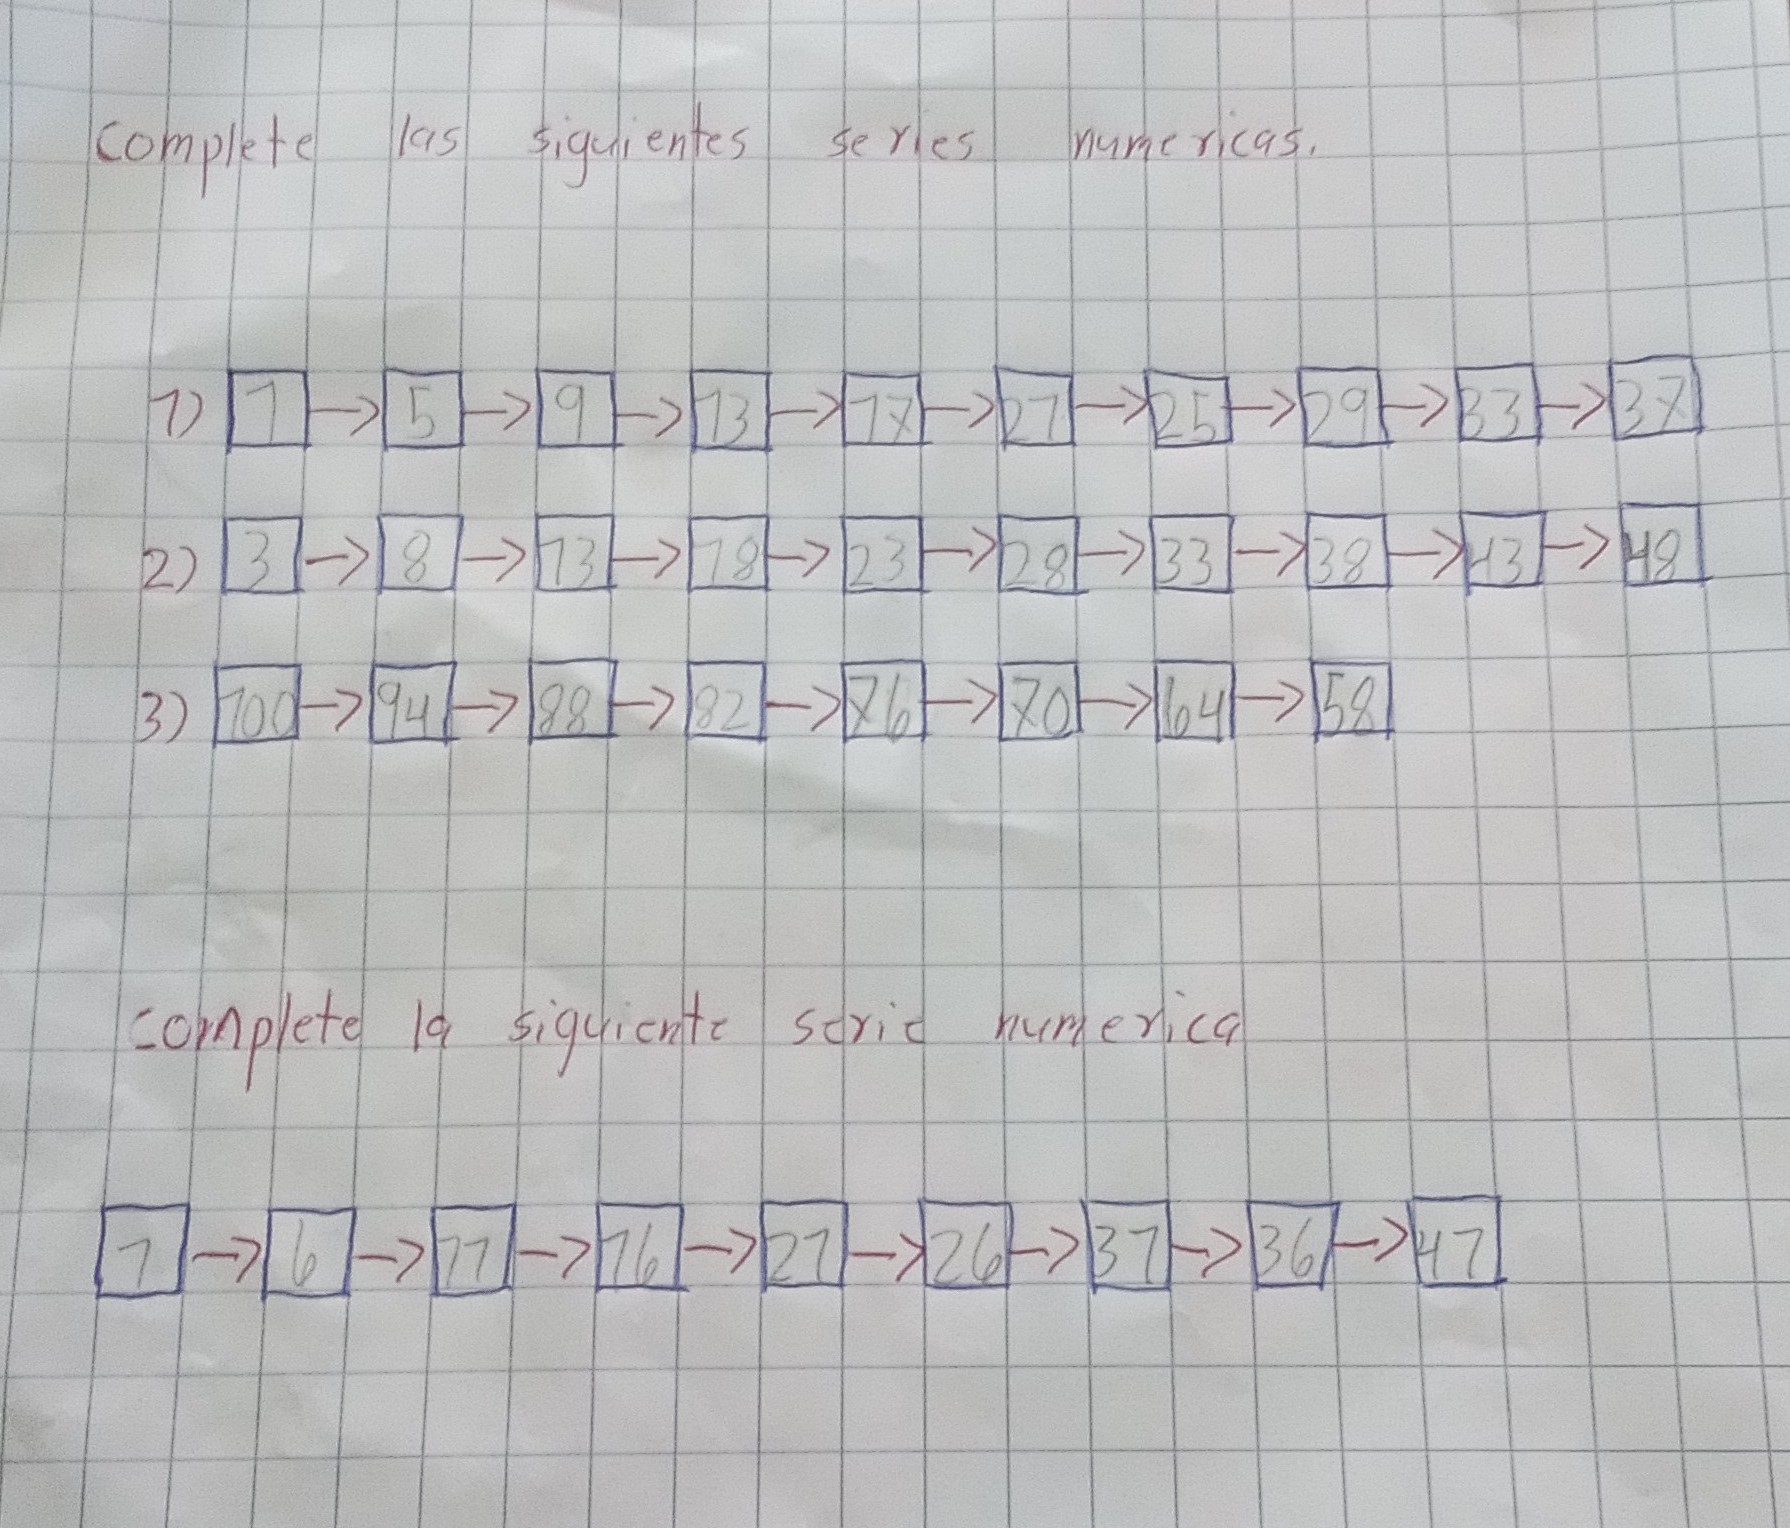 complete las siguientes series numericas.
1) 1 → 5 → 9 → 13 → 17 → 21 → 25 → 29 → 33 → 37
2) 3 → 8 → 13 → 18 → 23 → 28 → 33 → 38 → 43 → 48
3) 100 → 94 → 88 → 82 → 76 → 70 → 64 → 58
complete la siguiente serie numerica
1 → 6 → 11 → 16 → 21 → 26 → 31 → 36 → 41